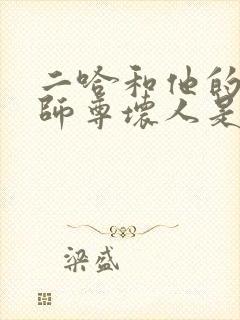 二哈和他的
师尊坏人是
梁盛